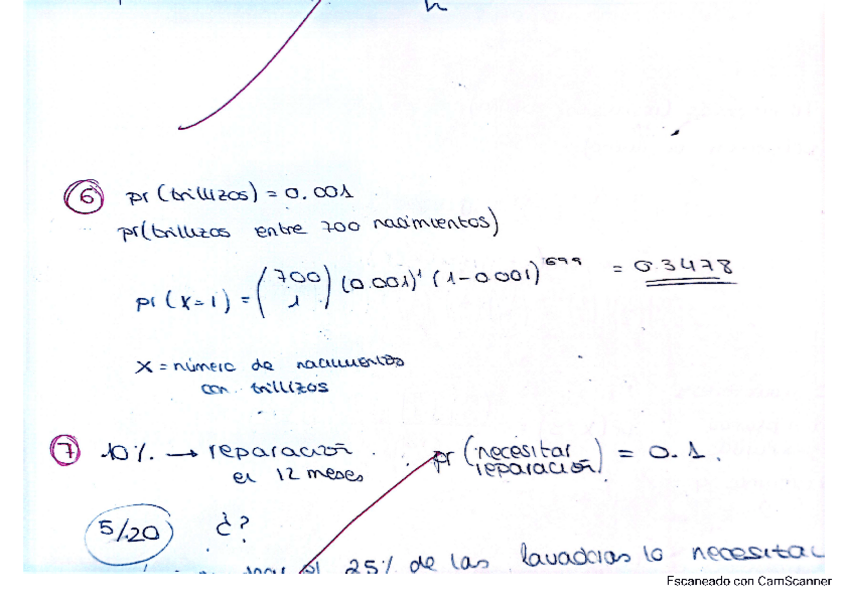 6 pr(trillizos) = 0.001
pr(trillizos entre 700 nacimientos)
pr(X=1) = (700 1) (0.001)¹ (1-0.001)⁶⁹⁹ = 0.3478
X = número de nacimientos
con trillizos
7 10%. → reparación
en 12 meses
pr (necesitar reparación) = 0.1.
5/20 ¿?
el 25% de las lavadoras lo necesitar
Escaneado con CamScanner